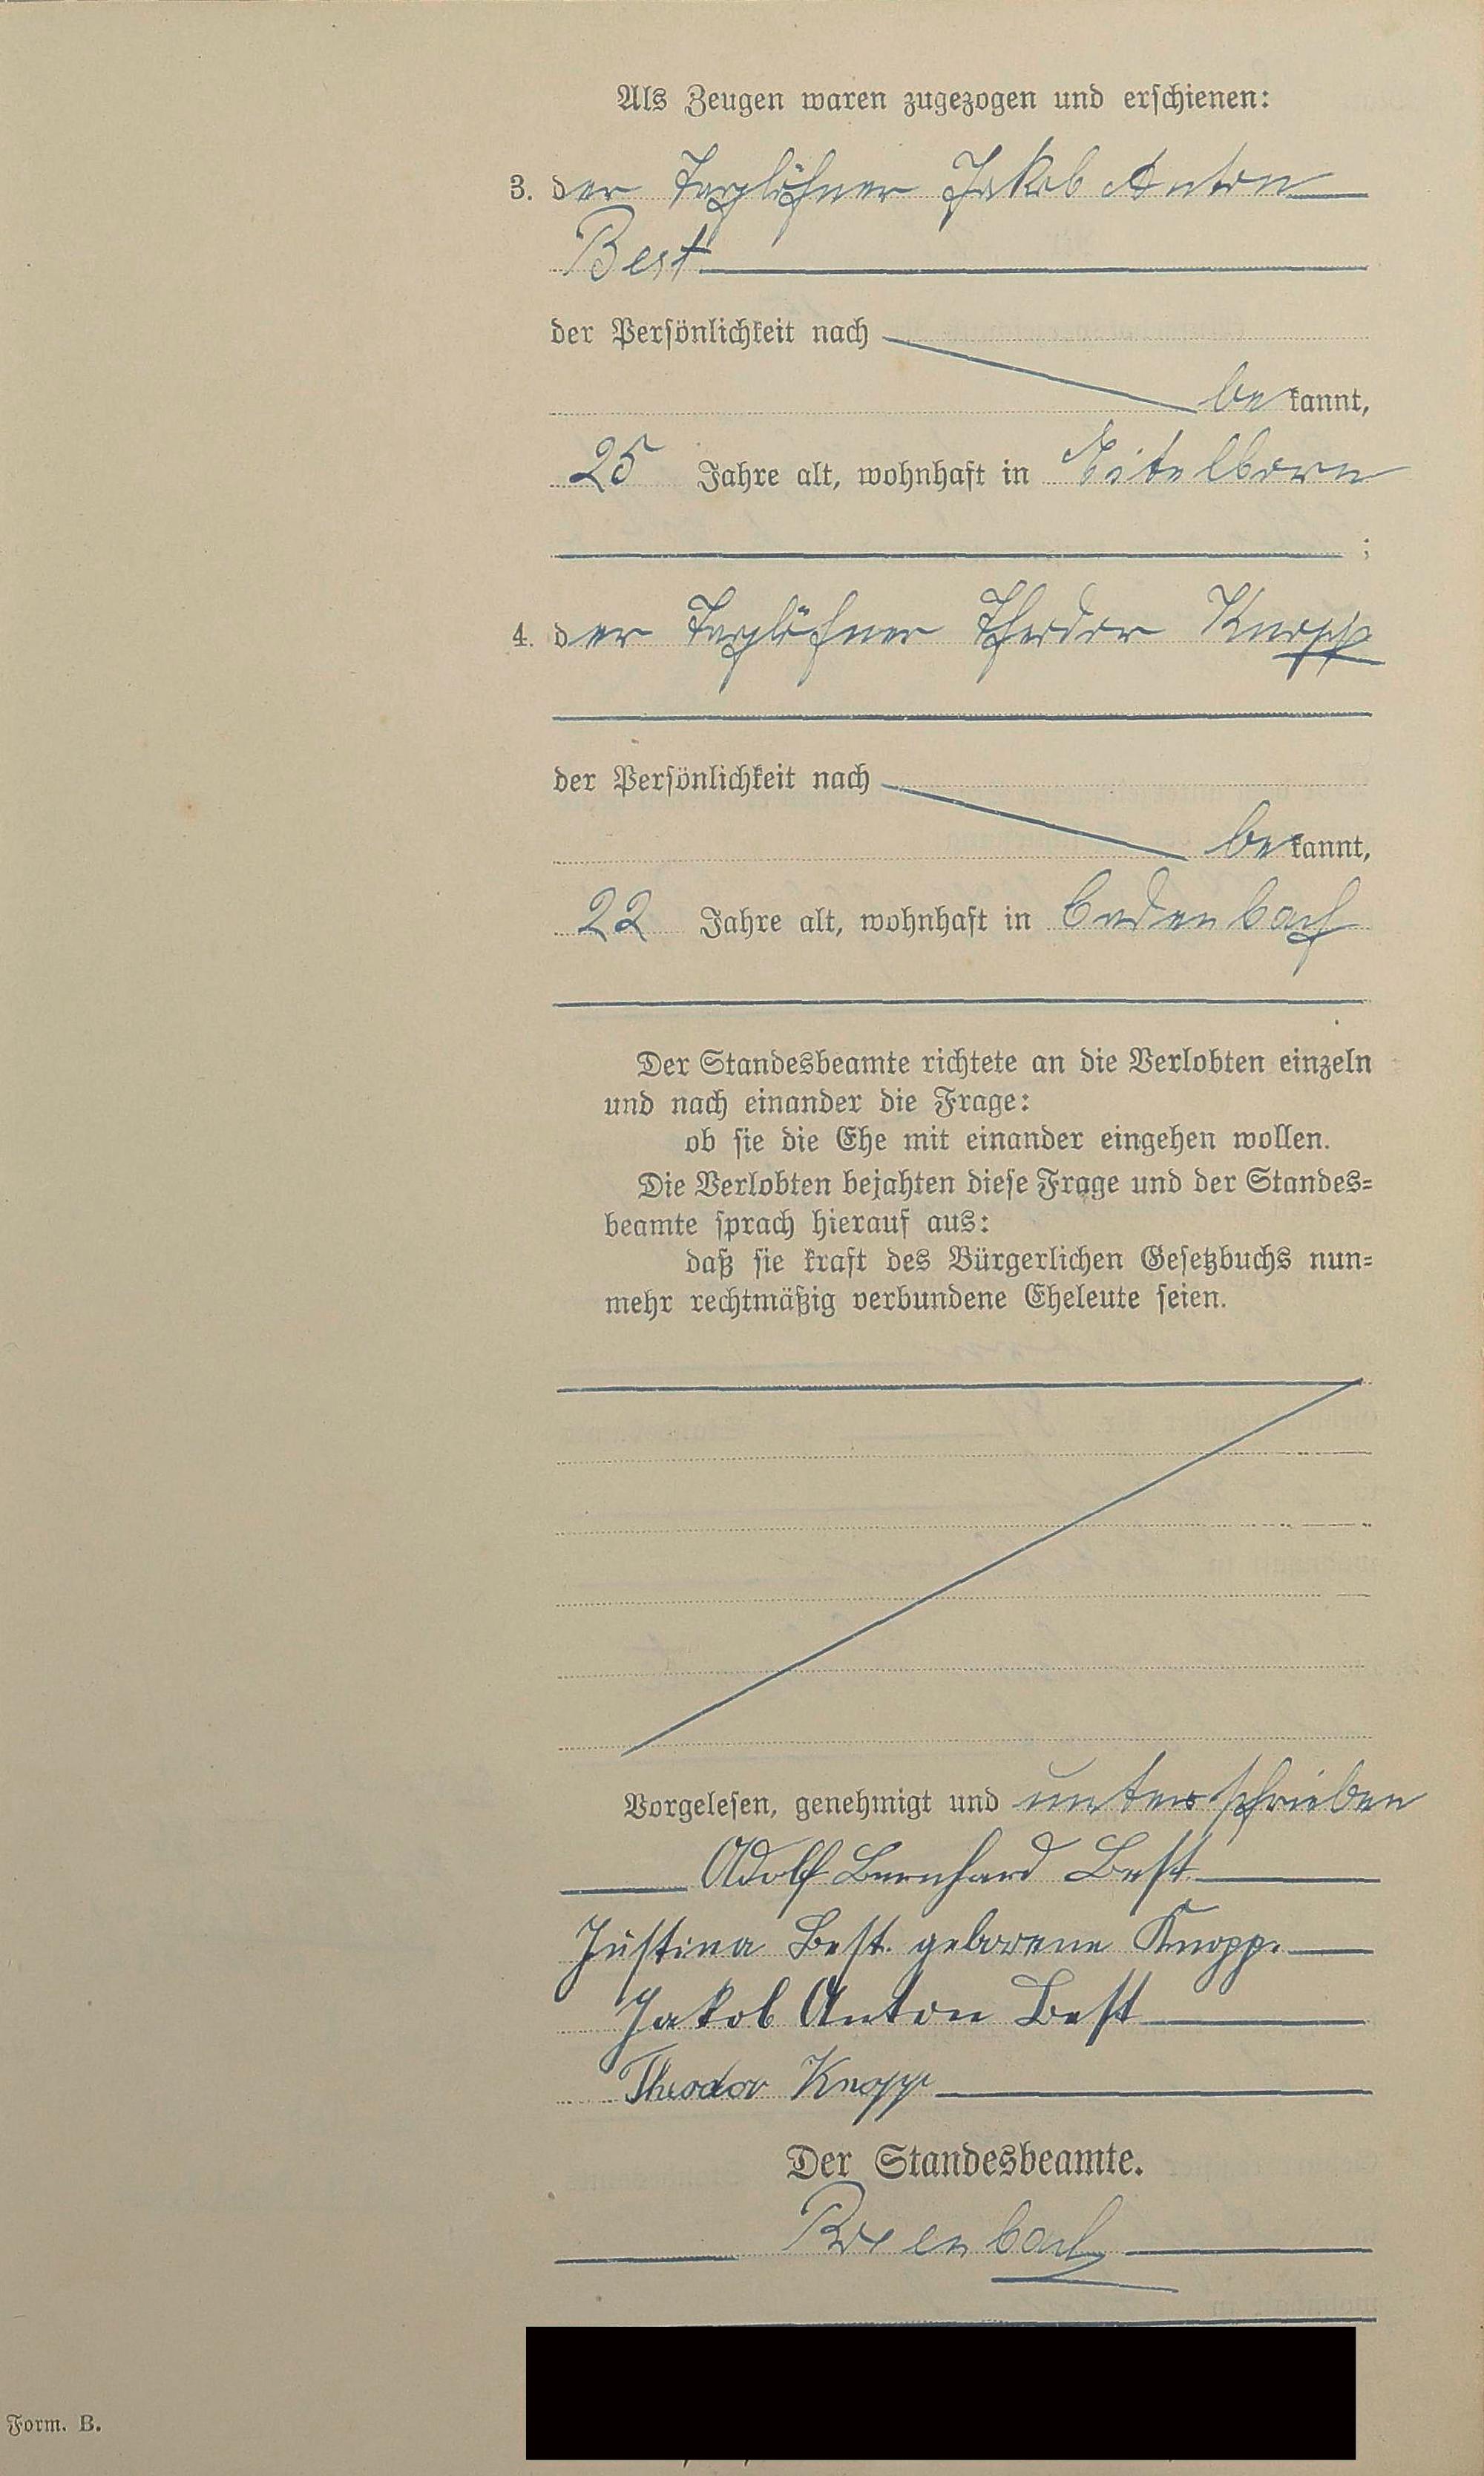 Als Zeugen waren zugezogen und erschienen:
3. der Taglöhner Jakob Anton
Best
der Persönlichkeit nach
bekannt,
25 Jahre alt, wohnhaft in Eitelborn
;
4. der Taglöhner Theodor Knopp
der Persönlichkeit nach
bekannt,
22 Jahre alt, wohnhaft in Cadenbach
Der Standesbeamte richtete an die Verlobten einzeln
und nach einander die Frage:
ob sie die Ehe mit einander eingehen wollen.
Die Verlobten bejahten diese Frage und der Standes=
beamte sprach hierauf aus:
daß sie kraft des Bürgerlichen Gesetzbuchs nun=
mehr rechtmäßig verbundene Eheleute seien.
Vorgelesen, genehmigt und unterschrieben
Adolf Bernhard Best
Justina Best. geborene Knopp.
Jakob Anton Best
Theodor Knopp
Der Standesbeamte.
Form. B.